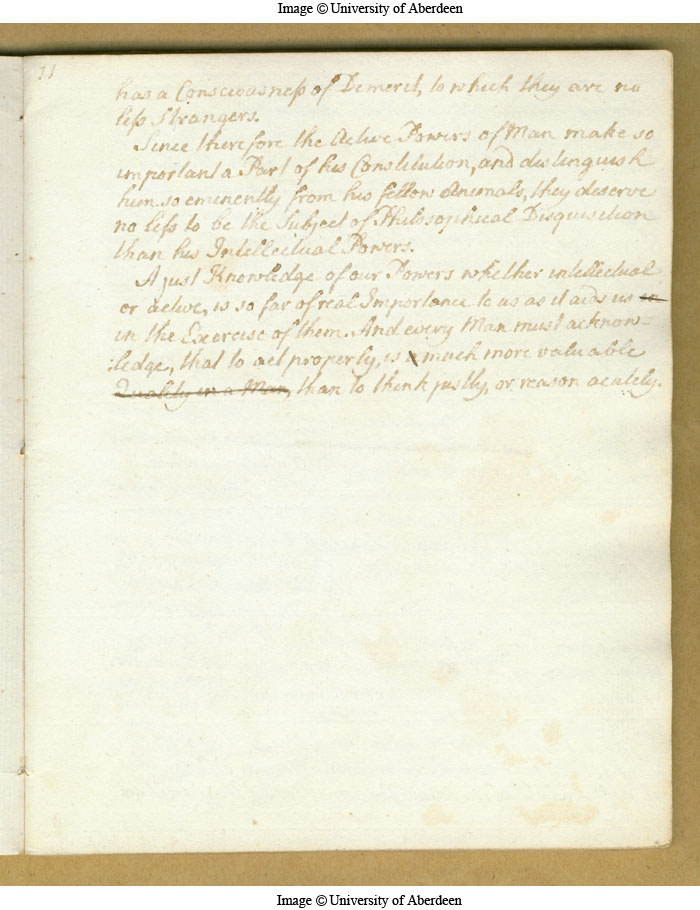 Image © University of Aberdeen
11
has a Consciousness of Demerit, to which they are no
less Strangers.
Since therefore the Active Powers of Man make so
important a Part of his Constitution, and distinguish
him so eminently from his fellow Animals, they deserve
no less to be the Subject of Philosophical Disquisition
than his Intellectual Powers.
A just Knowledge of our Powers whether intellectual
or active, is so far of real Importance to us as it aids us in
in the Exercise of them. And every Man must acknow-
:ledge, that to act properly, is a much more valuable
Quality in a Man, than to think justly, or reason acutely.
Image © University of Aberdeen